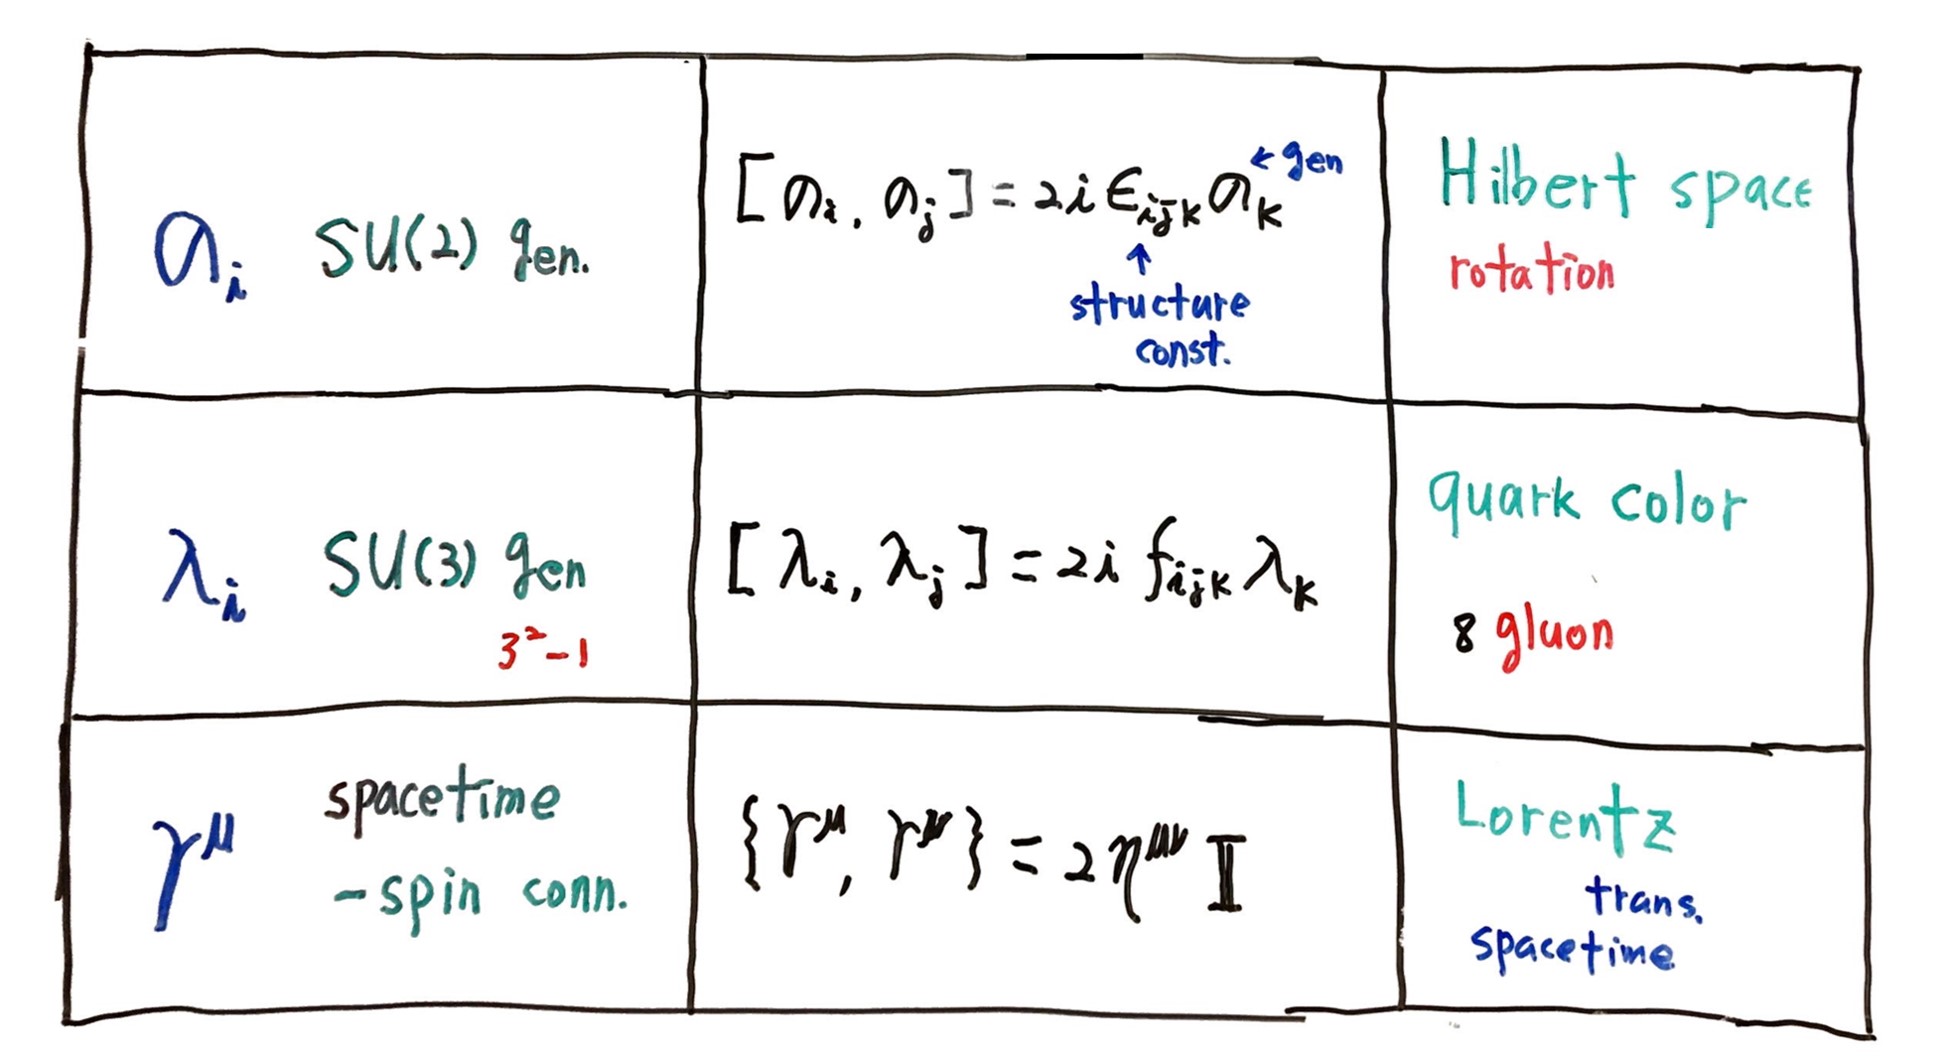 σᵢ SU(2) gen.
[σᵢ, σⱼ] = 2i ϵᵢⱼₖ σₖ ← gen
↑
structure
const.
Hilbert space
rotation
λᵢ SU(3) gen
3²-1
[λᵢ, λⱼ] = 2i fᵢⱼₖ λₖ
quark color
8 gluon
γ^μ spacetime
-spin conn.
{γ^μ, γ^ν} = 2η^μν 𝕀
Lorentz
trans.
spacetime